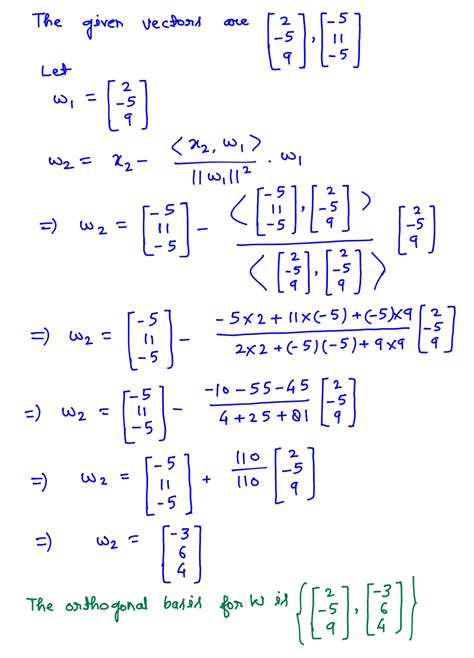 The given vectors are [2 -5 9], [-5 11 -5]
Let
w₁ = [2 -5 9]
w₂ = x₂ - <x₂, w₁> / ||w₁||² . w₁
=) w₂ = [-5 11 -5] - <[-5 11 -5], [2 -5 9]> / <[2 -5 9], [2 -5 9]> [2 -5 9]
=) w₂ = [-5 11 -5] - -5×2+11×(-5)+(-5)×9 / 2×2+(-5)(-5)+9×9 [2 -5 9]
=) w₂ = [-5 11 -5] - -10-55-45 / 4+25+81 [2 -5 9]
=) w₂ = [-5 11 -5] + 110/110 [2 -5 9]
=) w₂ = [-3 6 4]
The orthogonal basis for W is {[2 -5 9], [-3 6 4]}